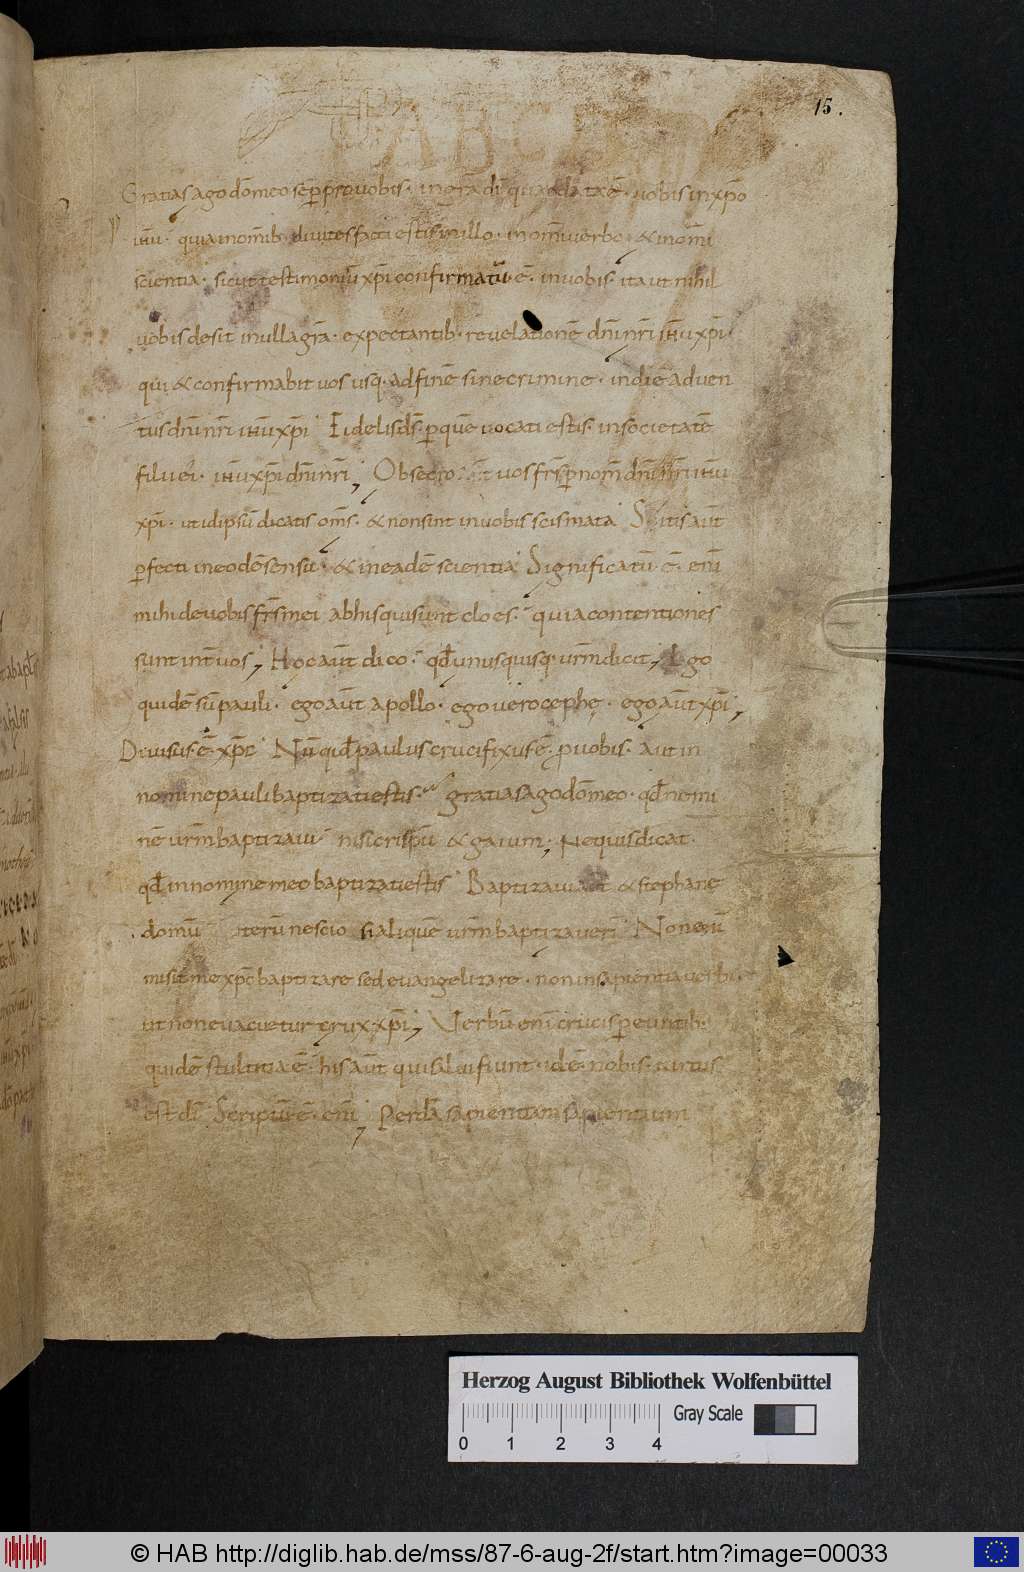 15.
Gratias ago dō meo sēp p͛ro uobis · in gr̄a dī quae data ē · uobis in xp̄o
ih̄u · quia in om̄ib · diuites facti estis in illo · in om̄i uerbo · & in om̄i
scientia · sicut testimoniū xp̄i confirmatū · ē · in uobis · ita ut nihil
uobis desit in ulla gr̄a · expectantib · reuelationē dn̄i nr̄i ih̄u xp̄i ·
qui & confirmabit uos usq · ad finē sine crimine · in diē aduen
tus dn̄i nr̄i ih̄u xp̄i Fidelis ds̄ · p quē uocati estis · in societatē
filii ei · ih̄u xp̄i dn̄i nr̄i, Obsecro uos fr̄s p nom̄ dn̄i nr̄i ih̄u
xp̄i · ut idipsū dicatis om̄s · & non sint in uobis scismata Sitis aūt
pfecti in eodē sensu · & in eadē scientia Significatū · ē · enī
mihi de uobis fr̄s mei ab his qui sunt cloes · quia contentiones
sunt int uos, Hoc aūt dico · qd̄ unusquisq · urm̄ dicit, Ego
quidē sū pauli · ego aūt apollo · ego uero cephę · ego aūt xp̄i,
Diuisus · ē · xp̄s Nūqid paulus crucifixus ē · p uobis · aut in
nomine pauli baptizati estis · gratias ago dō meo · qd̄ nemi
nē urm̄ baptizaui · nisi crispū & gaium, Ne quis dicat ·
qd̄ in nomine meo baptizati estis Baptizaui aūt & stephane
domū ceterū nescio si aliquē urm̄ baptizauerī Non enī
misit me xp̄s baptizare sed euangelizare · non in sapientia uerbi ·
ut non euacuetur crux xp̄i, Verbū enī crucis peuntib ·
quidē stultitia ē · his aūt qui salui fiunt · id ē · nobis · uirtus
est dī Scriptū · ē · enī, Perdā sapientiam sapientium
Herzog August Bibliothek Wolfenbüttel
Gray Scale
0 1 2 3 4
© HAB http://diglib.hab.de/mss/87-6-aug-2f/start.htm?image=00033